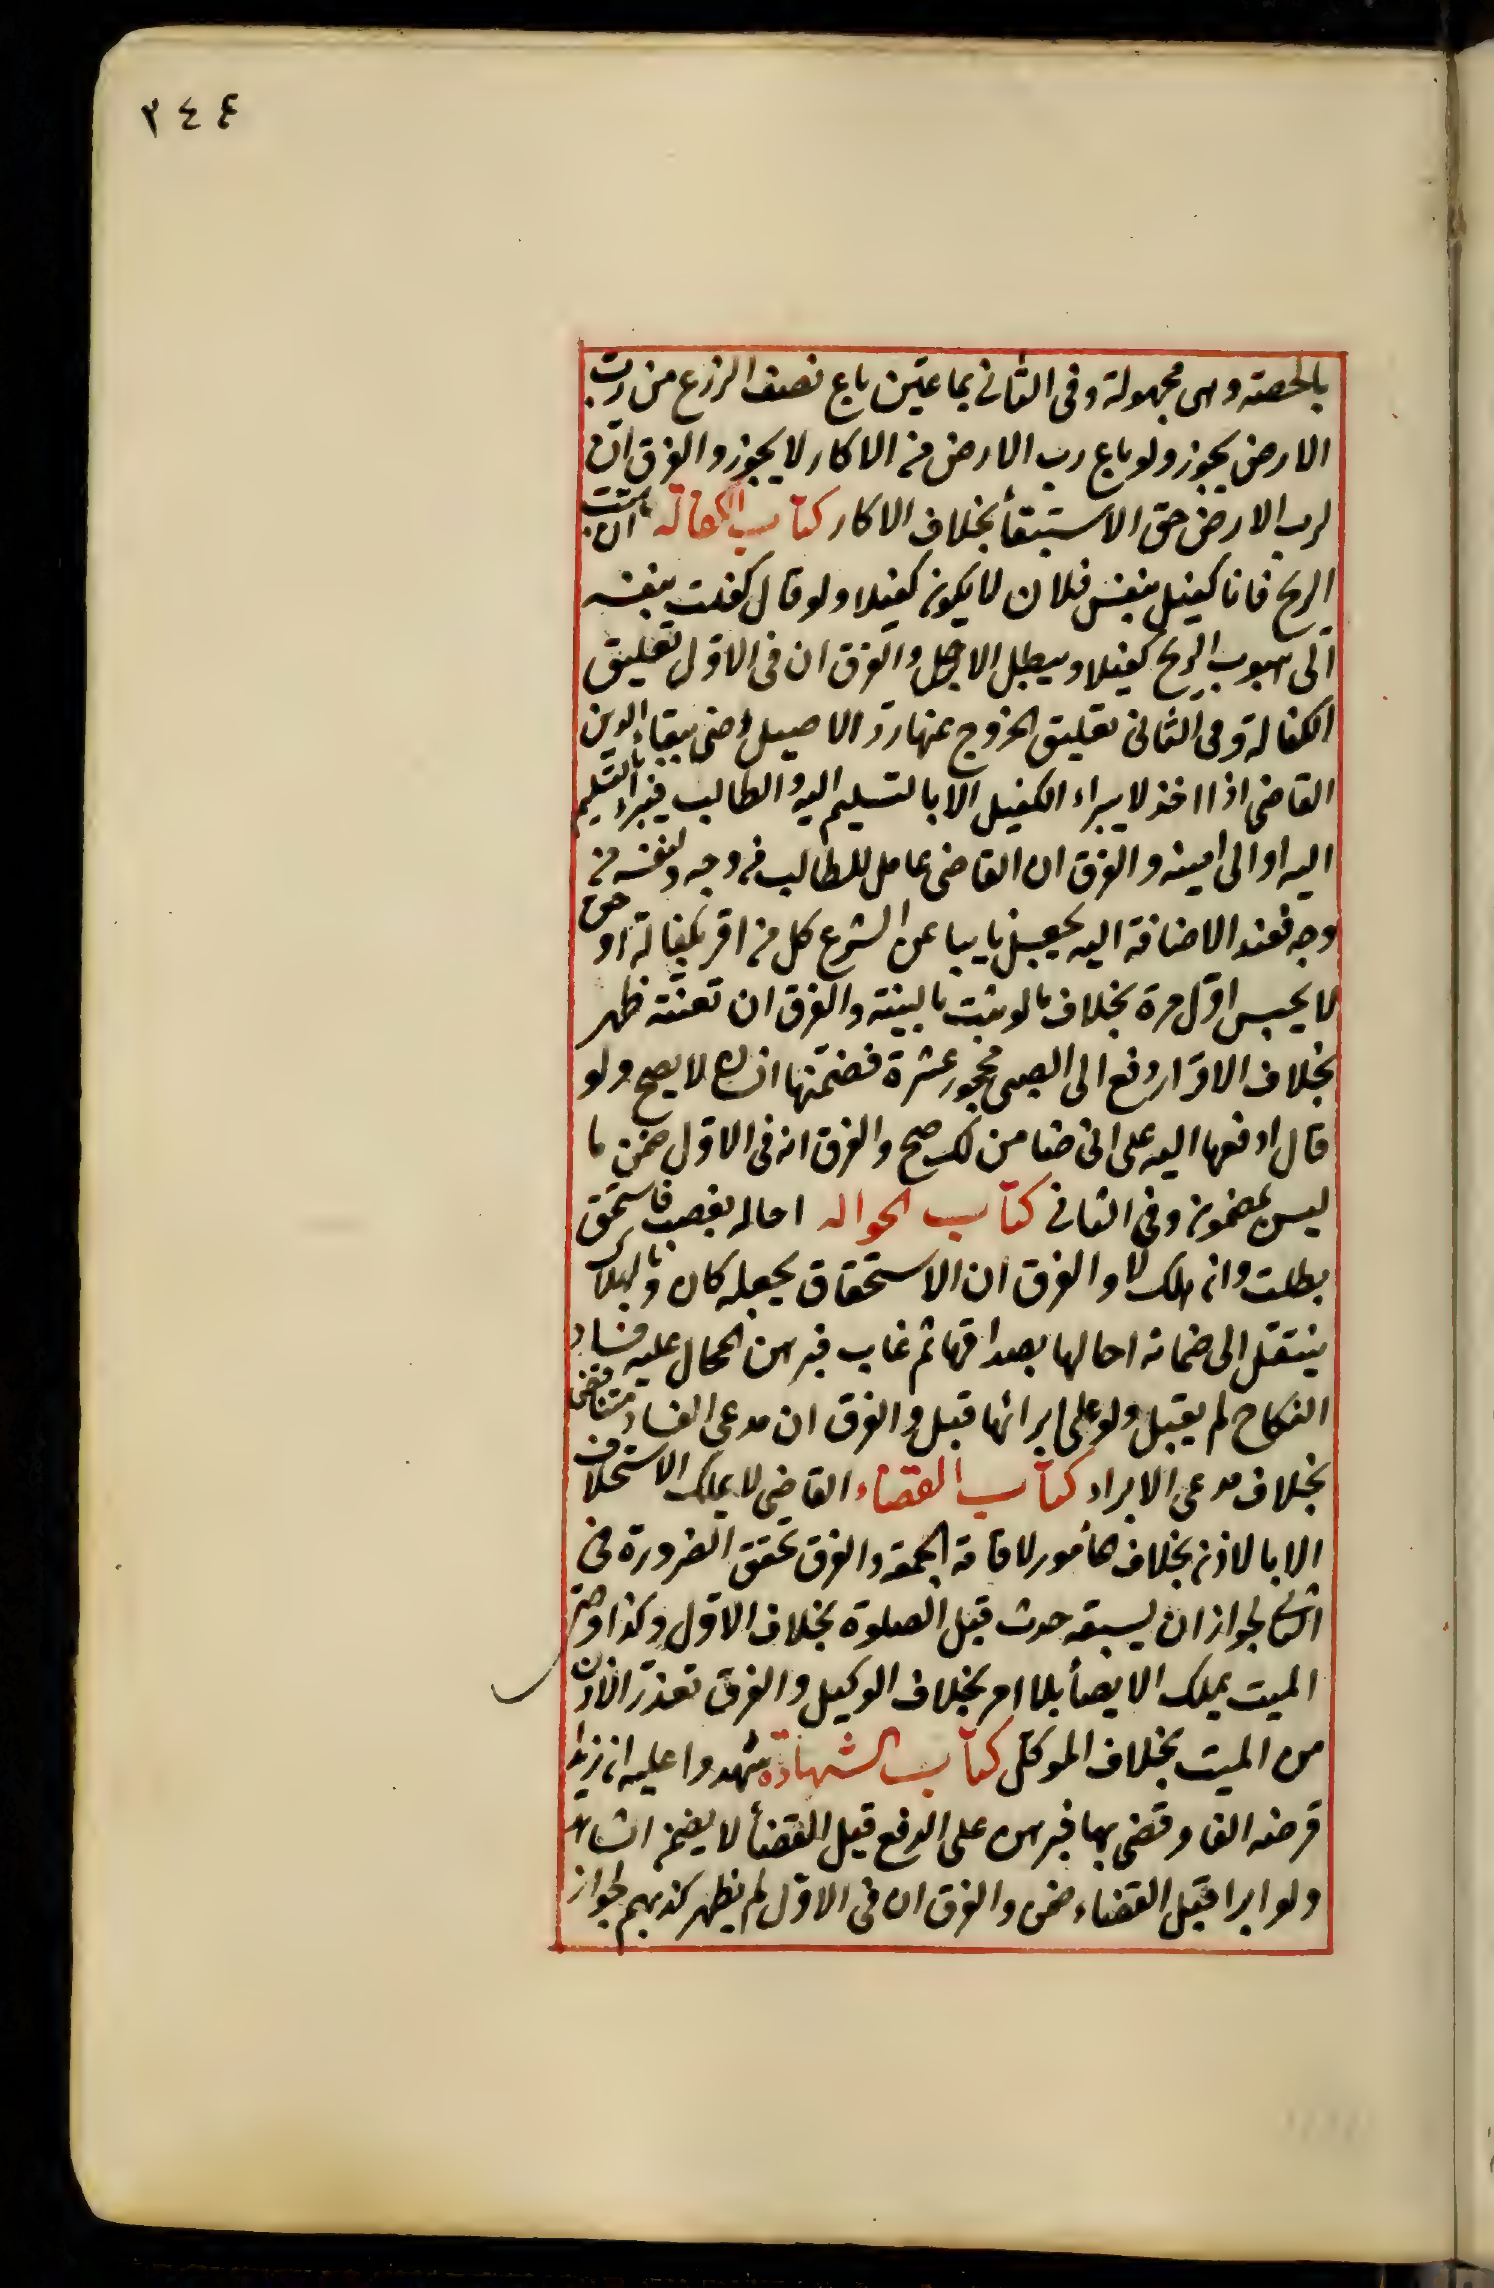 ٣٤٤
بالحصة وهى مجهولة وفى الثانى بماعين باع نصف الزرع من رب
الارض يجوز ولو باع رب الارض من الاكار لا يجوز والفرق ان
لرب الارض حق الاستبقأ بخلاف الاكار كتاب الكفالة ان هبت
الريح فانا كفيل بنفس فلان لا يكون كفيلا ولو قال كفلت بنفسه
الى هبوب الريح كفيلا ويبطل الاجل والفرق ان فى الاول تعليق
الكفالة وفى الثانى تعليق الخروج عنها رد الاصيل بقاء الدين
القاضى اذا اخذ لا يبراء الكفيل الا بالتسليم اليه والطالب فيبراء بالتسليم
اليه او الى امينه والفرق ان القاضى عامل للطالب من وجه ولنفسه من
وجه فعند الاضافة اليه يجعل نايبا عن الشرع كل من اقر بكفالة او حق
لا يحبس اول مرة بخلاف ما لو ثبت بالبينة والفرق ان تعنته ظهر
بخلاف الاقرار دفع الى الصبى محجور عشرة فضمنها انسان لا يصح ولو
قال ادفعها اليه على انى ضامن لك صح والفرق انه فى الاول ضمن ما
ليس بمضمون وفى الثانى كتاب الحواله احاله بغصب فاستحق
بطلت وان هلك لا والفرق ان الاستحقاق يجعله كان وبالهلاك
ينتقل الى ضمانه احالها بصداقها ثم غاب فبرهن المحال عليه فساد
النكاح لم يقبل ولو على ابرائها قبل والفرق ان مدعى الفساد متناقض
بخلاف مدعى الابراء كتاب القضاء القاضى لا يملك الاستخلاف
الا بالاذن بخلاف مأمور لاقامة الجمعة والفرق تحقق الضرورة فى
الثانى لجواز ان يسبقه حدث قبل الصلوة بخلاف الاول وكذا وصى
الميت يملك الايصأ بلا امر بخلاف الوكيل والفرق تعذر الاذن
من الميت بخلاف الموكل كتاب الشهادة شهدوا عليه ان زيدا
قرضه الفا وقضى بها فبرهن على الدفع قبل القضأ لا يضمن الشاهد
ولو ابرا قبل القضاء ضمن والفرق ان فى الاول لم يظهر كذبهم لجواز